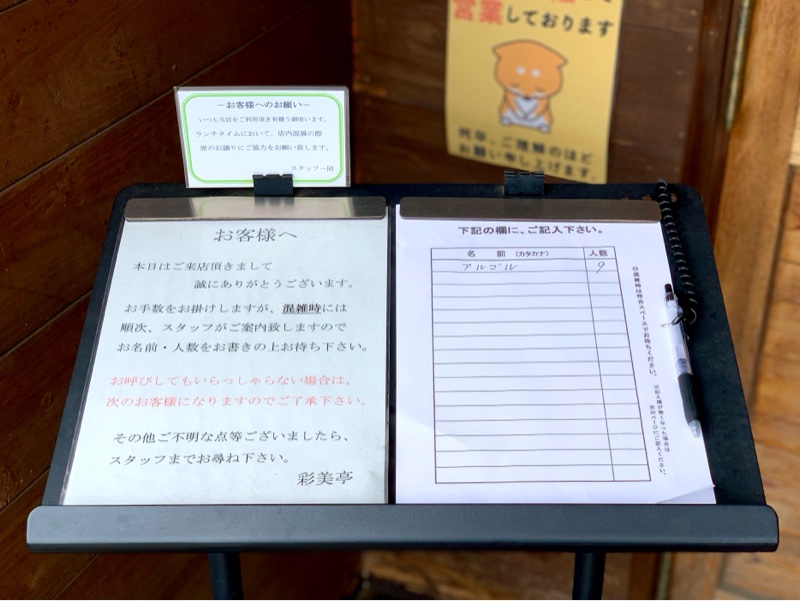 営業しております
何卒、ご理解のほど
お願い申し上げます。
－お客様へのお願い－
いつも当店をご利用頂き有難う御座います。
ランチタイムにおいて、店内混雑の際
席のお譲りにご協力をお願い致します。
スタッフ一同
お客様へ
本日はご来店頂きまして
誠にありがとうございます。
お手数をお掛けしますが、混雑時には
順次、スタッフがご案内致しますので
お名前・人数をお書きの上お待ち下さい。
お呼びしてもいらっしゃらない場合は、
次のお客様になりますのでご了承下さい。
その他ご不明な点等ございましたら、
スタッフまでお尋ね下さい。
彩美亭
下記の欄に、ご記入下さい。
名 前 (カタカナ) 人数
アルゴル 9
◎混雑時は待合スペースでお待ちください。
※記入欄が無くなった場合は
次のページにご記入ください。